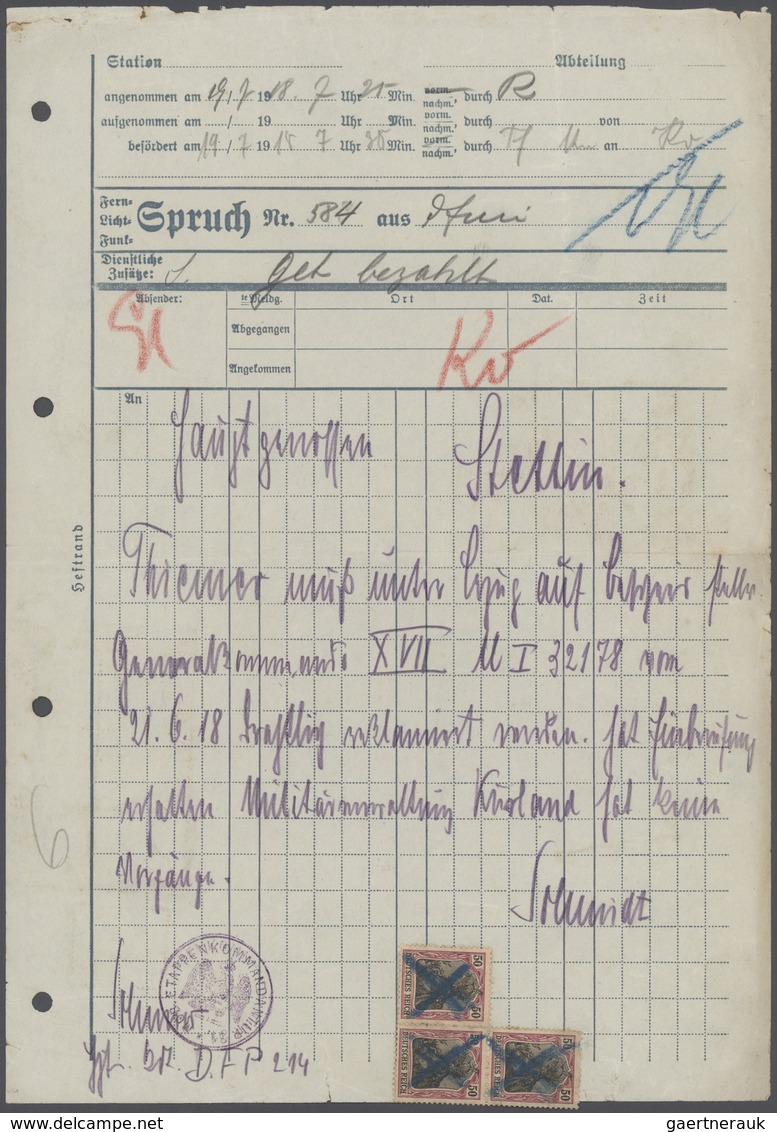 Station Abteilung
angenommen am 19./7 1918. 7 Uhr 25 Min. vorm. nachm. durch R
aufgenommen am / 19 Uhr Min. vorm. nachm. durch von
befördert am 19/7 1918 7 Uhr 30 Min. vorm. nachm. durch an Kv
Fern-
Licht-
Funk-
Spruch Nr. 584 aus
Dienstliche
Zusätze: S. bezahlt
Absender: te Meldg. Ort Dat. Zeit
Abgegangen
Angekommen
Kv
An
Hauptgenossen Stettin.
Thiemer muß unter Bezug auf Bescheid stellv.
Generalkommando XVII M I 32178 vom
21.6.18 drahtlich reklamiert werden. hat Einberufung
erhalten Militärverwaltung Kurland hat keine
Vorgänge.
Schmidt
Heftrand
6
ETAPPENKOMMANDANTUR
D.F.P 214
50
DEUTSCHES REICH
50
DEUTSCHES REICH
50
DEUTSCHES REICH
gaertnerauk